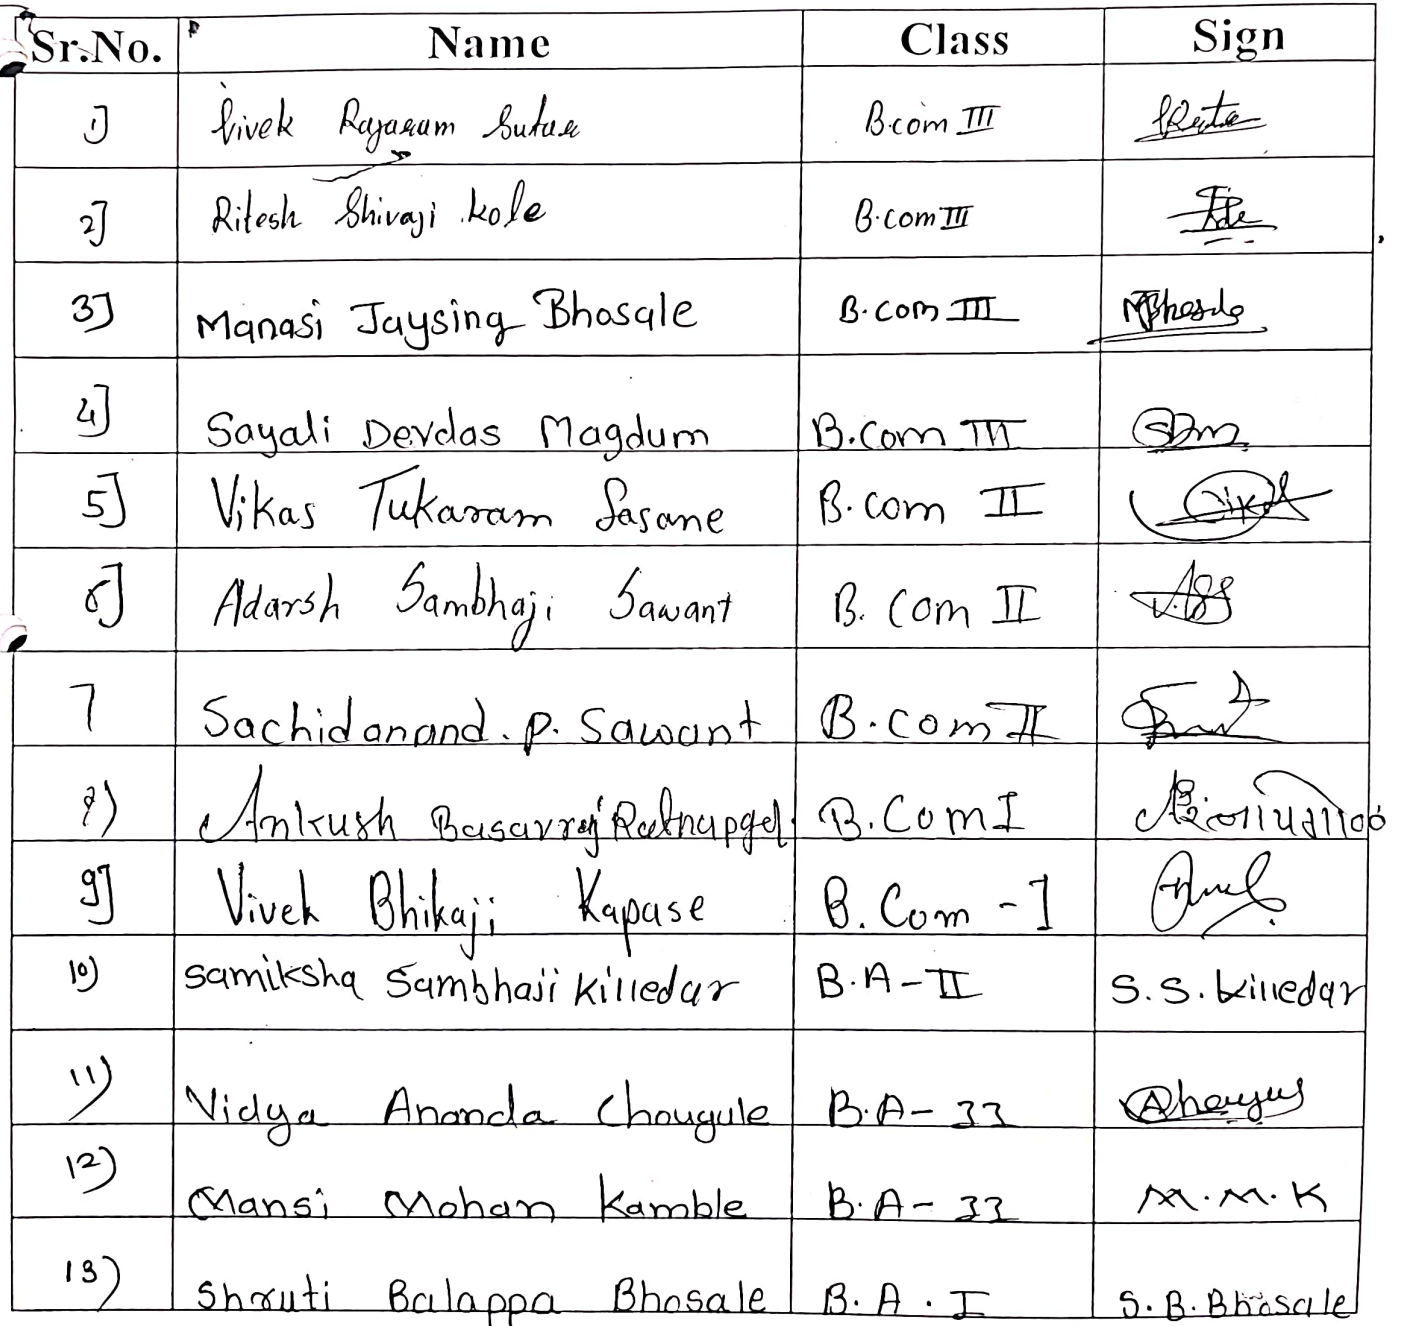 Sr.No. Name Class Sign
1] Vivek Rajaram Sutar B.com III
2] Ritesh Shivaji kole B.com III
3] Manasi Jaysing Bhosale B.com III MBhosale
4] Sayali Devdas Magdum B.Com III SDM
5] Vikas Tukaram Sasane B.com II Vikas
6] Adarsh Sambhaji Sawant B. Com II ASS
7 Sachidanand. P. Sawant B.com II
8) Ankush Basavraj B.Com I
9] Vivek Bhikaji Kapase B. Com - I
10) Samiksha Sambhaji Killedar B.A - II S.S. killedar
11) Vidya Ananda Chougule B.A - II
12) Mansi Mohan Kamble B.A - II M.M.K
13) Shruti Balappa Bhosale B.A. I S.B.Bhosale